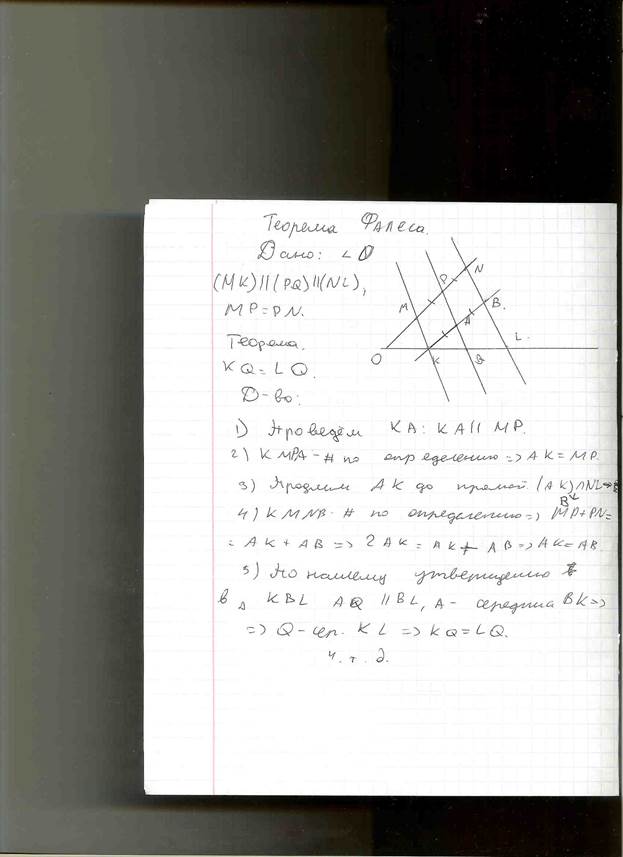 Теорема Фалеса.
Дано: ∠O
(MK)||(PQ)||(NL),
MP=PN.
Теорема.
KQ=LQ.
Д-во:
M P N A B K Q L O
1) Проведём KA: KA || MP.
2) KMPA - # по определению => AK = MP.
3) Продлим AK до прямой. (AK)∩NL = B
4) KMNB - # по определению => MP+PN=
= AK + AB => 2AK = AK + AB => AK = AB.
5) По нашему утверждению
в △ KBL AQ || BL, A - середина BK =>
=> Q - сер. KL => KQ = LQ.
ч. т. д.